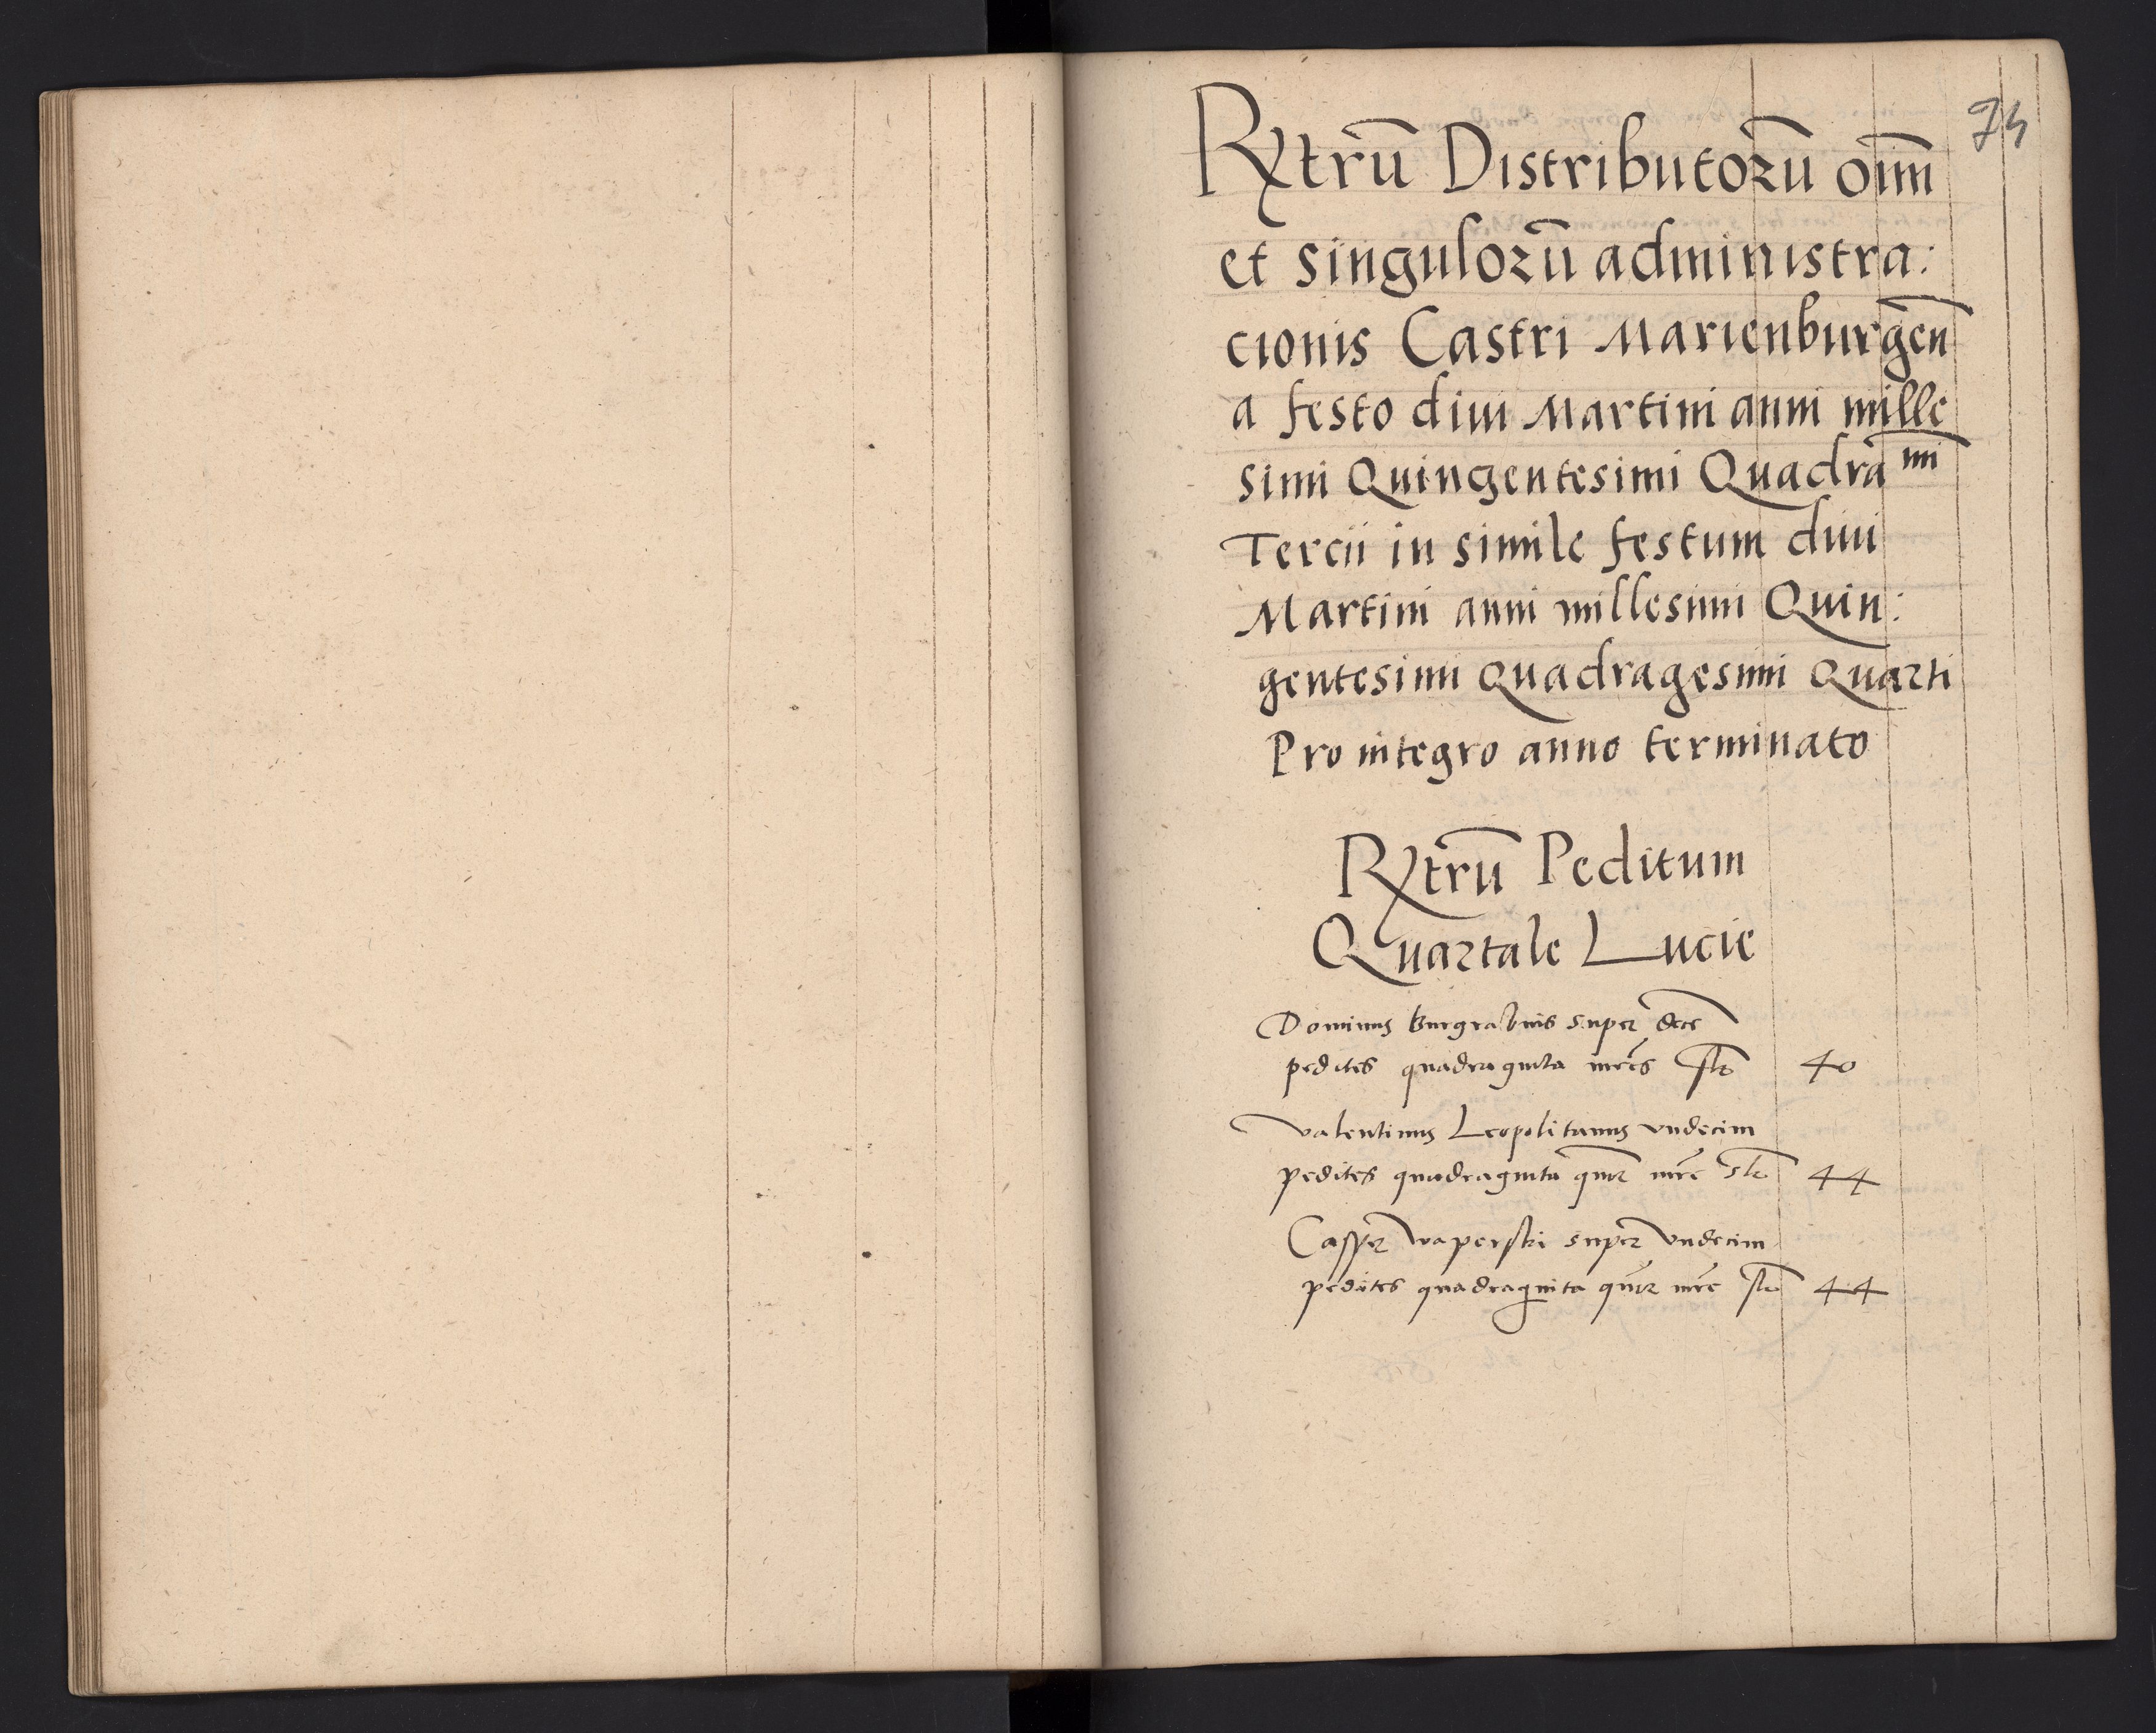 74
Rxtrū Distributorū oīm
et singulorū administra:
cionis Castri Marienburgen̄
a festo diui Martini anni mille
simi Quingentesimi Quadra mi
Tercii in simile festum diui
Martini anni millesimi Quin:
gentesimi Quadragesimi Quarti
Pro integro anno terminato
Rxtrū Peditum
Quartale Lucie
Dominus Burgrabius super dece
pedites quadraginta mrcs 40
Valentinus Leopolitanus vndecim
pedites quadraginta quor mrc 44
Casper waperski super vndecim
pedites quadraginta quor mrc 44